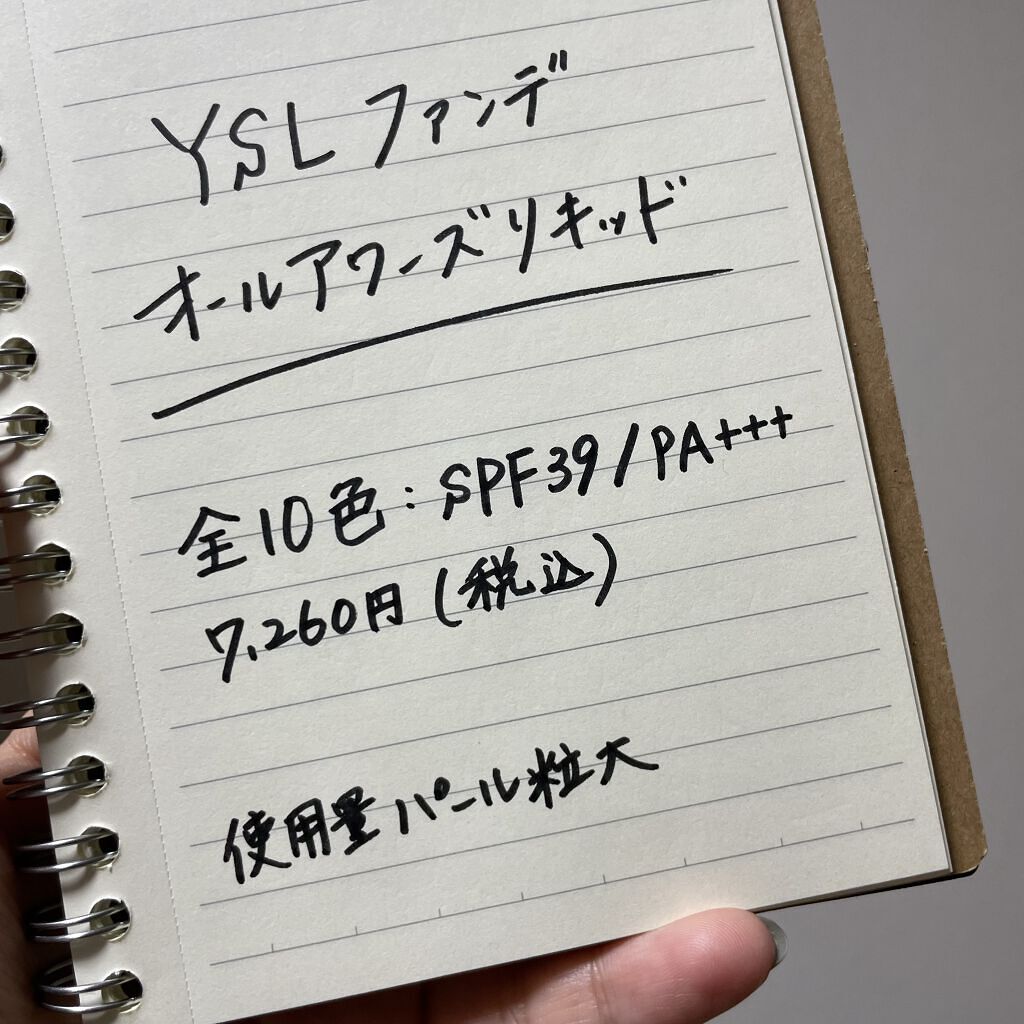 YSL ファンデ
オールアワーズリキッド
全10色：SPF39/PA+++
7,260円(税込)
使用量パール粒大